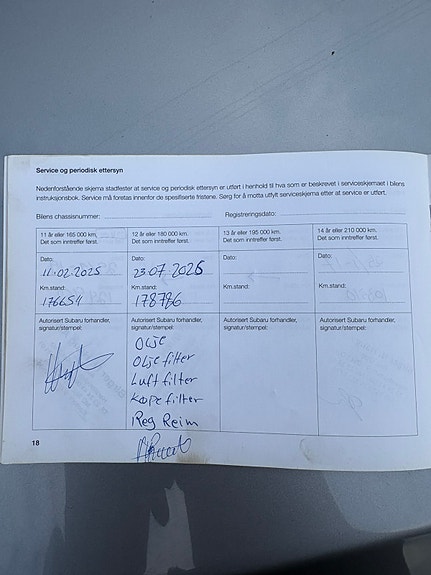 Service og periodisk ettersyn
Nedenforstående skjema stadfester at service og periodisk ettersyn er utført i henhold til hva som er beskrevet i serviceskjemaet i bilens
instruksjonsbok. Service må foretas innenfor de spesifiserte fristene. Sørg for å motta utfylt serviceskjema etter at service er utført.
Bilens chassisnummer: Registreringsdato:
11 år eller 165 000 km.
Det som inntreffer først.
Dato:
11.02.2025
Km.stand:
176654
Autorisert Subaru forhandler,
signatur/stempel:
12 år eller 180 000 km.
Det som inntreffer først.
Dato:
23.07.2025
Km.stand:
178776
Autorisert Subaru forhandler,
signatur/stempel:
Olje
Olje filter
Luft filter
Kope filter
Reg Reim
13 år eller 195 000 km.
Det som inntreffer først.
Dato:
Km.stand:
Autorisert Subaru forhandler,
signatur/stempel:
14 år eller 210 000 km.
Det som inntreffer først.
Dato:
Km.stand:
Autorisert Subaru forhandler,
signatur/stempel:
18